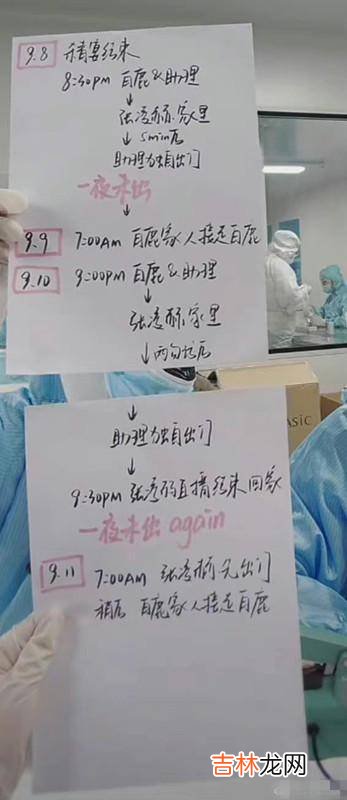 9.8 精要结束
8:30pm 百鹿&助理
↓
张凌赫家里
↓5min后
助理独自出门
一夜未出
↓
9.9 7:00Am 百鹿家人接走百鹿
9.10 9:00pm 百鹿&助理
↓
张凌赫家里
↓两句拉后
ASiC
↓
助理独自出门
↓
9:30pm 张凌赫直播结束回家
一夜未出 again
9.11 7:00Am 张凌赫先出门
稍后 百鹿家人接走百鹿
吉林龙网